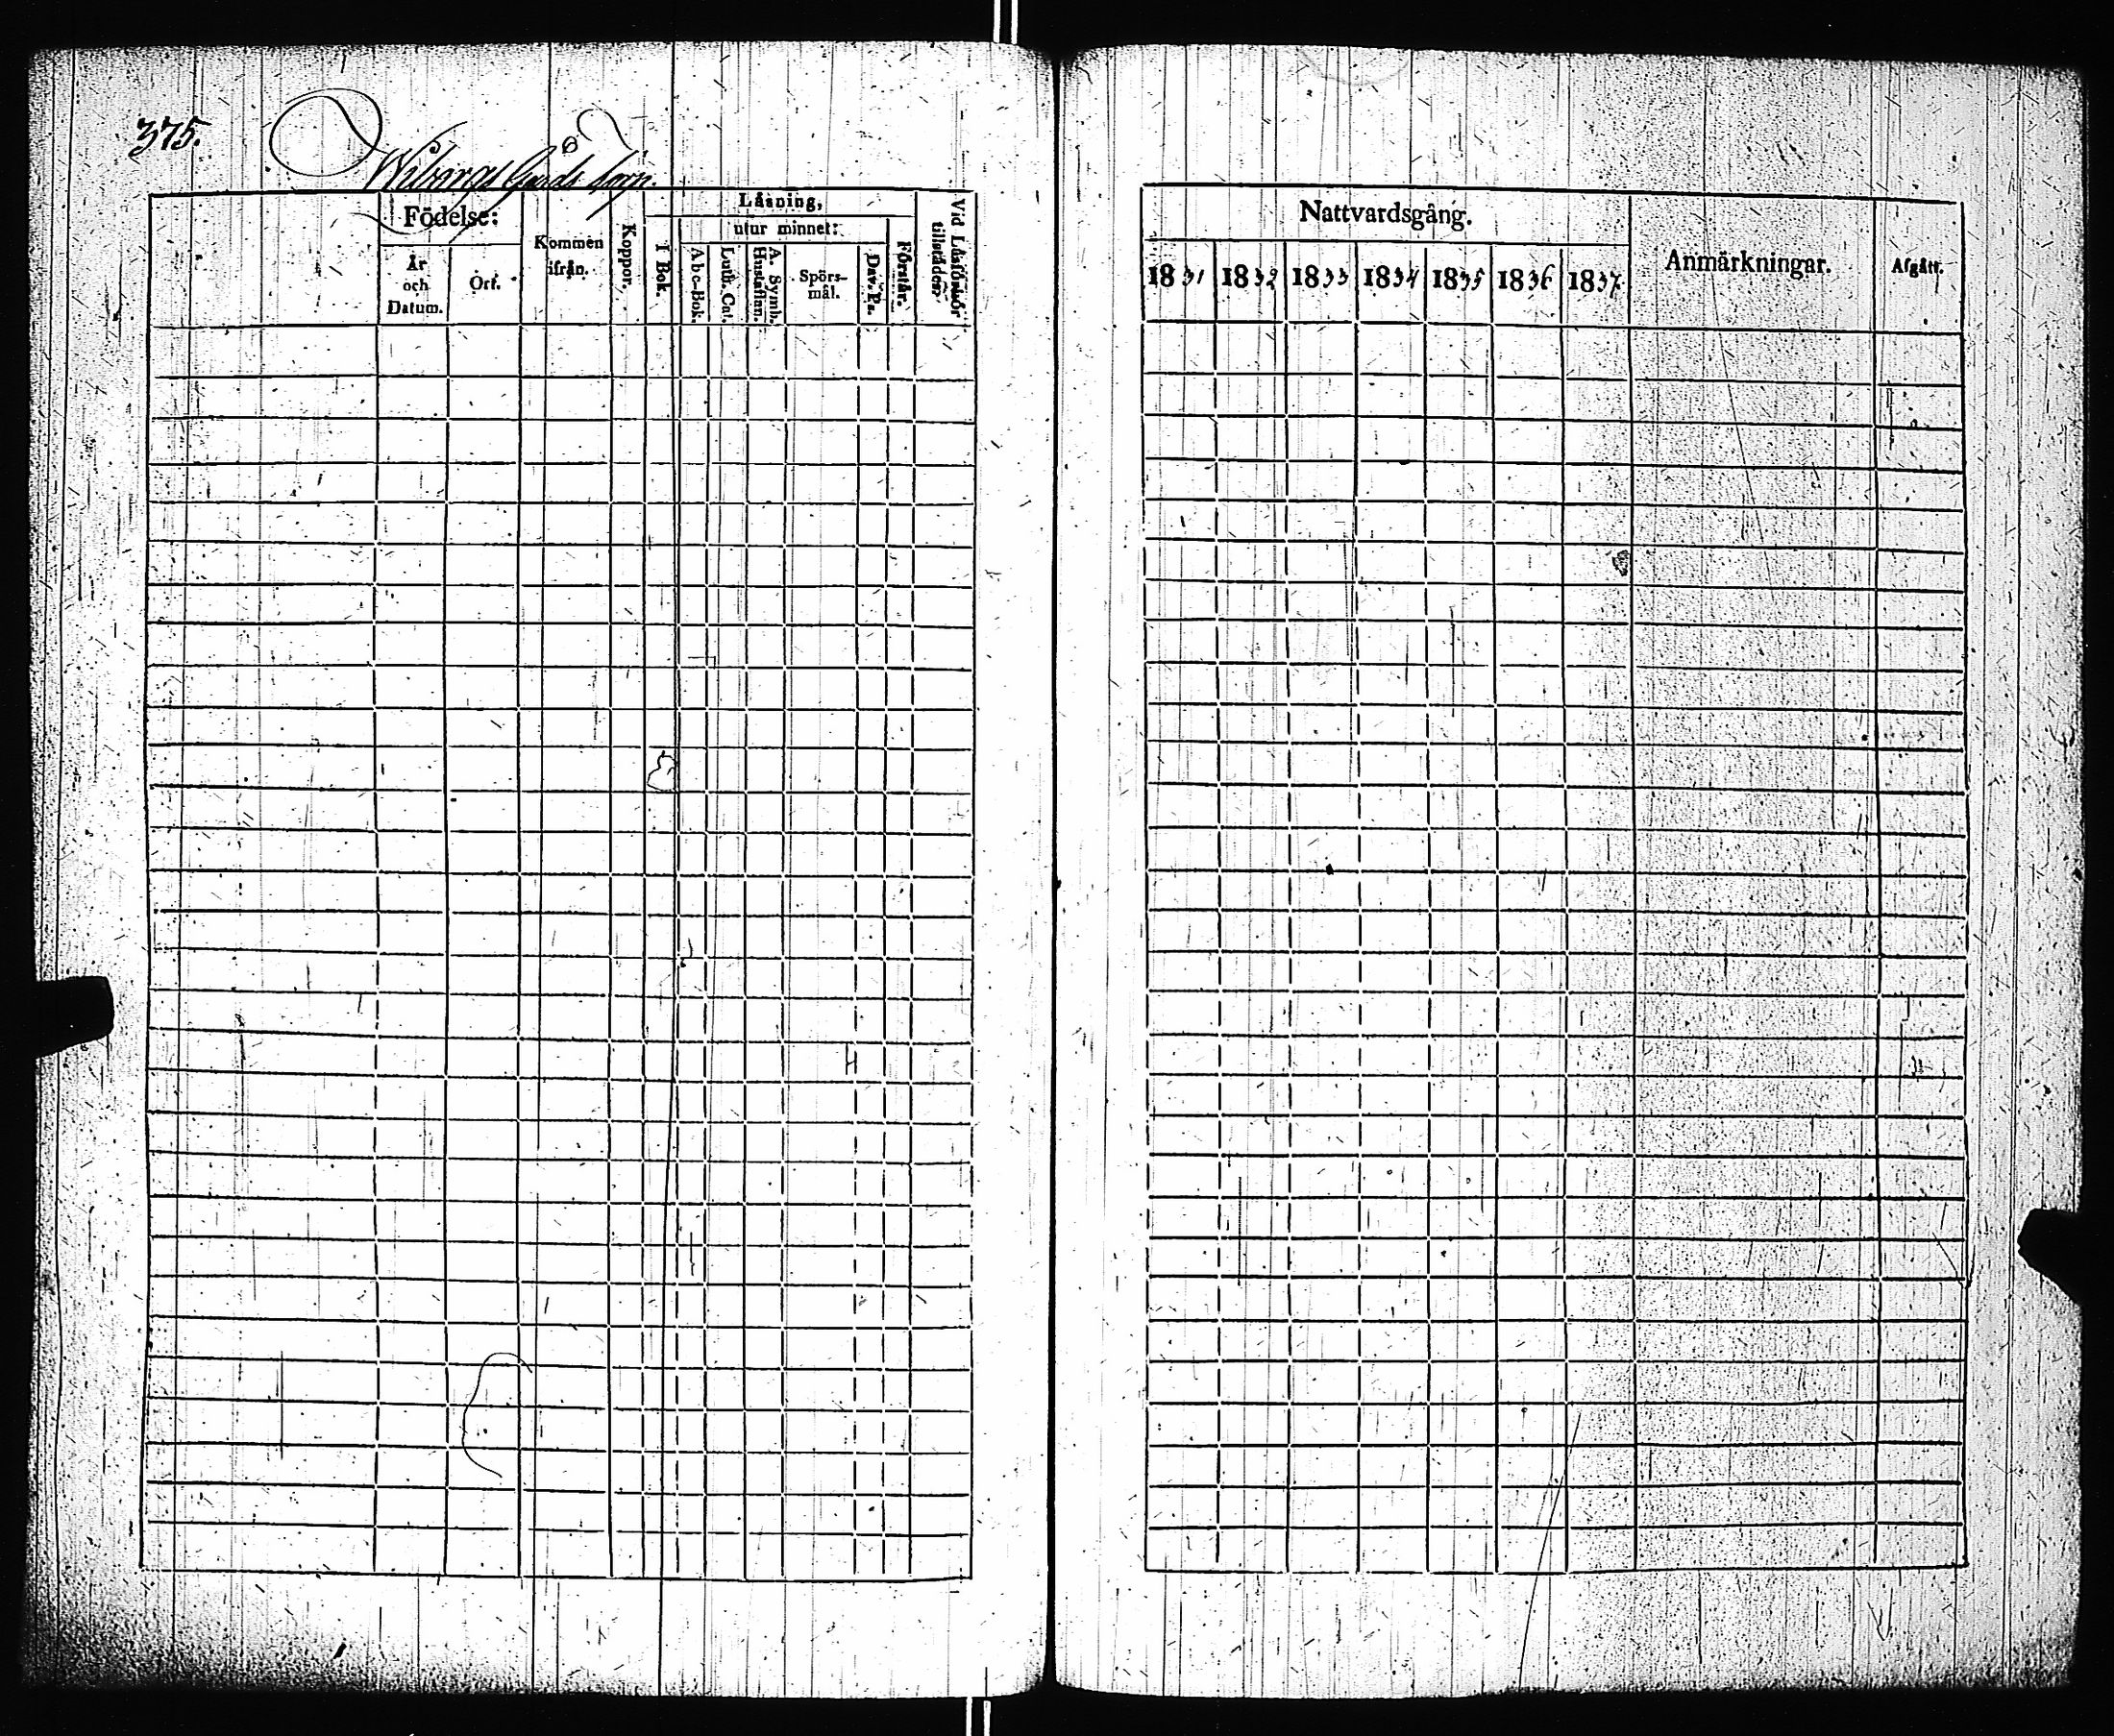 375.
Gårds torp.
Födelse:
År och Datum.
Ort.
Kommen ifrån.
Koppor.
Läsning,
I Bok.
utur minnet:
Abc-Bok.
Luth. Cat.
A. Symb. Hustaflan.
Spörs-
mål.
Dav. Ps.
Förstår.
Vid Läsförhör tillstädes:
Nattvardsgång.
1831 1832 1833 1834 1835 1836 1837
Anmärkningar.
Afgått.